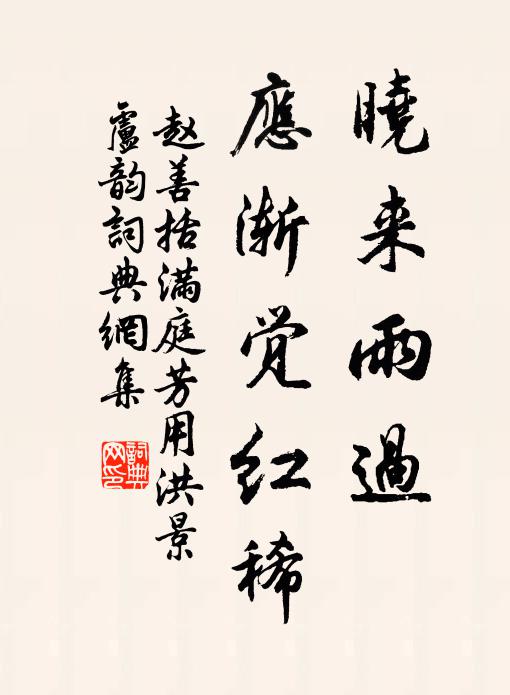 曉来雨過
應渐觉红稀
赵善括满庭芳用洪景
盧韵詞典網集
詞典网印